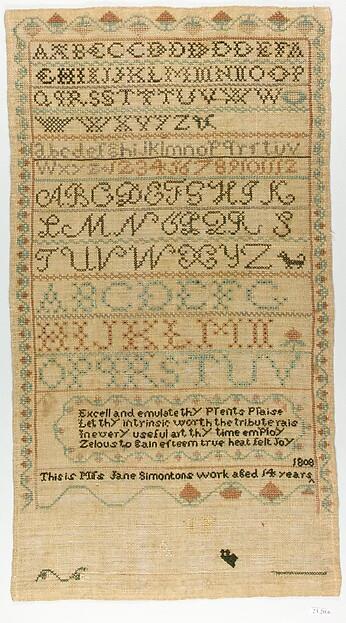 AABBCCDDDDDEFA
GHIIJJKLMMNIIOOP
QIRSSTTTUVXWW
WXYYZ
abcdefghiJKlmnoPqrstuv
Wxyz 123456789101112
ABCDEFGHIK
LMNOPQRS
TUVWXYZ
ABCDEFG
HIJKLMN
OPQRSTUV
Excell and emulate thy Prents Praise
Let thy intrinsic worth the tribute rais
In every useful art thy time employ
Zelous to Gain esteem true heat felt Joy
1808
This is Miss Jane Simontons work aged 14 years